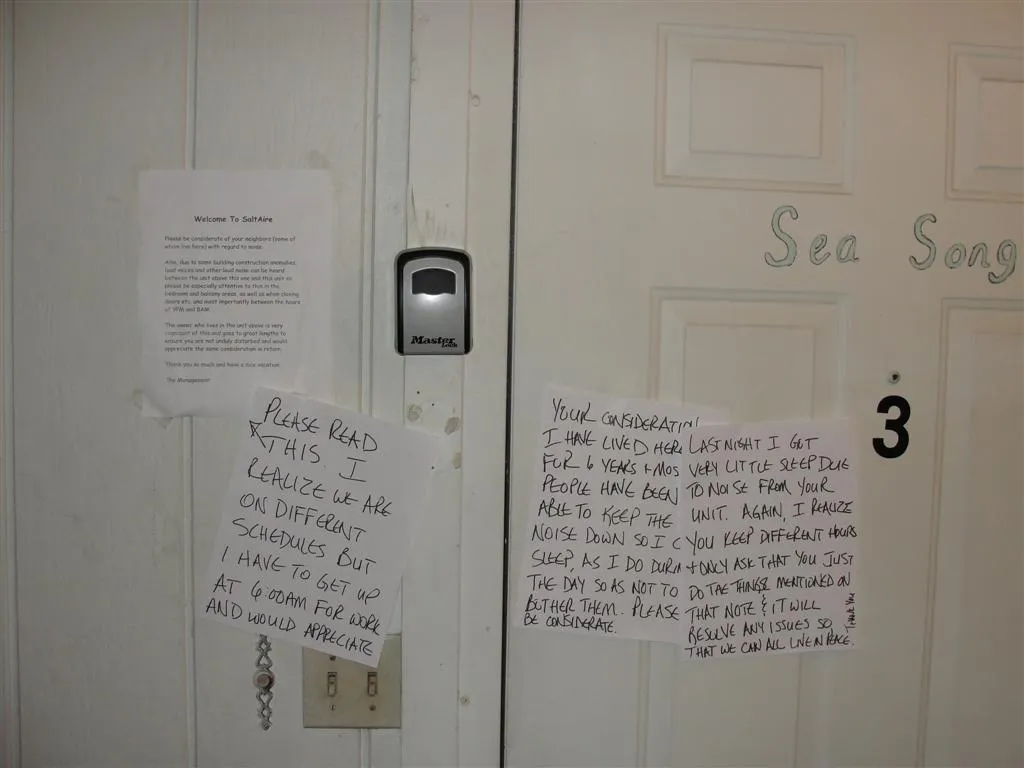 Welcome To SaltAire
Please be considerate of your neighbors (some of
whom live here) with regard to noise.
Also, due to some building construction anomalies,
loud voices and other loud noise can be heard
between the unit above this one and this unit so
please be especially attentive to this in the
bedroom and balcony areas, as well as when closing
doors etc. and most importantly between the hours
of 9PM and 8AM.
The owner who lives in the unit above is very
cognizant of this and goes to great lengths to
ensure you are not unduly disturbed and would
appreciate the same consideration in return.
Thank you so much and have a nice vacation.
The Management
PLEASE READ
THIS. I
REALIZE WE ARE
ON DIFFERENT
SCHEDULES BUT
I HAVE TO GET UP
AT 6:00AM FOR WORK
AND WOULD APPRECIATE
Master
Lock
YOUR CONSIDERATIN
I HAVE LIVED HER
FOR 6 YEARS + MOS
PEOPLE HAVE BEEN
ABLE TO KEEP THE
NOISE DOWN SO I C
SLEEP, AS I DO DURIN
THE DAY SO AS NOT TO
BOTHER THEM. PLEASE
BE CONSIDERATE.
LAST NIGHT I GOT
VERY LITTLE SLEEP DUE
TO NOISE FROM YOUR
UNIT. AGAIN, I REALIZE
YOU KEEP DIFFERENT HOURS
+ ONLY ASK THAT YOU JUST
DO THE THINGS MENTIONED ON
THAT NOTE & IT WILL
RESOLVE ANY ISSUES SO
THAT WE CAN ALL LIVE IN PEACE.
THANK YOU
Sea Song
3